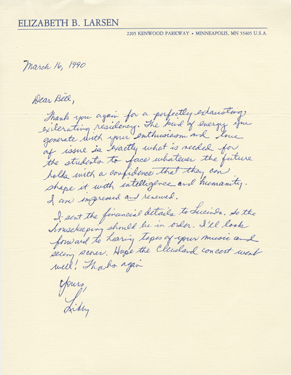 ELIZABETH B. LARSEN
2205 KENWOOD PARKWAY • MINNEAPOLIS, MN 55405 U.S.A.
March 16, 1990
Dear
Thank you again for a perfectly exhausting,
exilerating residency. The kind of energy you
generate with your enthusiasm and love
of issue is exactly what is needed for
the students to face whatever the future
holds with a confidence that they can
shape it with intelligence and humanity.
I am impressed and renewed.
I sent the financial details to Lucinda. So the
housekeeping should be in order. I'll look
forward to hearing tapes of your music and
seeing scores. Hope the Cleveland concert went
well! Thanks again
Yours,
Libby